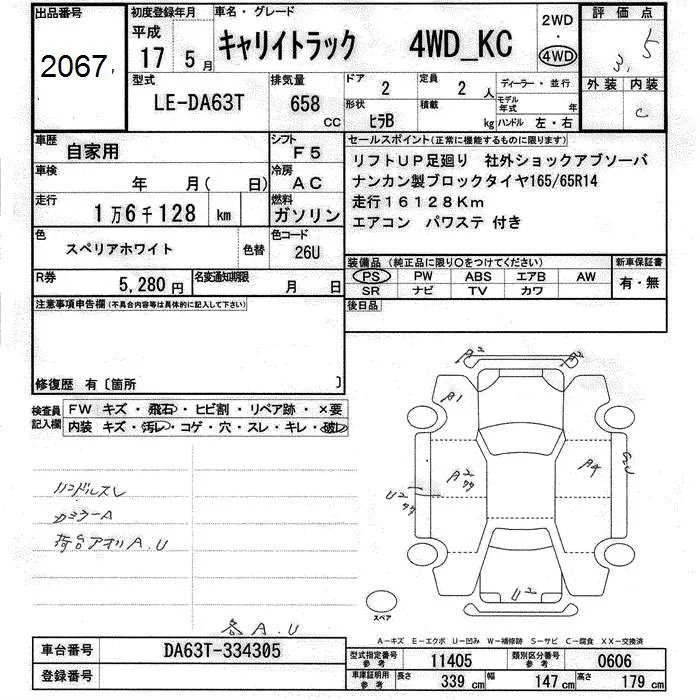 出品番号
2067
初度登録年月
平成
17 5月
車名・グレード
キャリイトラック 4WD_KC
2WD
・
4WD
評価点
3.5
外装 内装
C
型式
LE-DA63T
排気量
658 cc
ドア
2
形状
ヒラB
定員
2 人
積載
kg
ディーラー・並行
モデル年式 年
ハンドル 左・右
車歴
自家用
シフト
F5
車検
年 月( 日)
冷房
AC
走行
1万6千128 km
燃料
ガソリン
色
スペリアホワイト
色替
色コード
26U
R券
5,280円
名変通知期限
月 日
セールスポイント(正常に機能するものに限ります)
リフトUP足廻り 社外ショックアブソーバ
ナンカン製ブロックタイヤ165/65R14
走行16128Km
エアコン パワステ 付き
装備品 (純正品に限り○をつけてください)
PS PW ABS エアB AW
SR ナビ TV カワ
新車保証書
有・無
後日品
注意事項申告欄(不具合内容等は具体的に記入して下さい)
修復歴 有〔箇所 〕
検査員記入欄
FW キズ・飛石・ヒビ割・リペア跡・×要
内装 キズ・汚レ・コゲ・穴・スレ・キレ・破レ
ハンドルスレ
カミラーA
荷台アオリA.U
各A.U
A2
A2
A1
A2
A4
U2
U2
スペア
A-キズ E-エクボ U-凹み W-補修跡 S-サビ C-腐食 XX-交換済
車台番号
DA63T-334305
登録番号
型式指定番号 参考
11405
類別区分番号 参考
0606
車庫証明用 参考
長さ 339 cm
幅 147 cm
高さ 179 cm